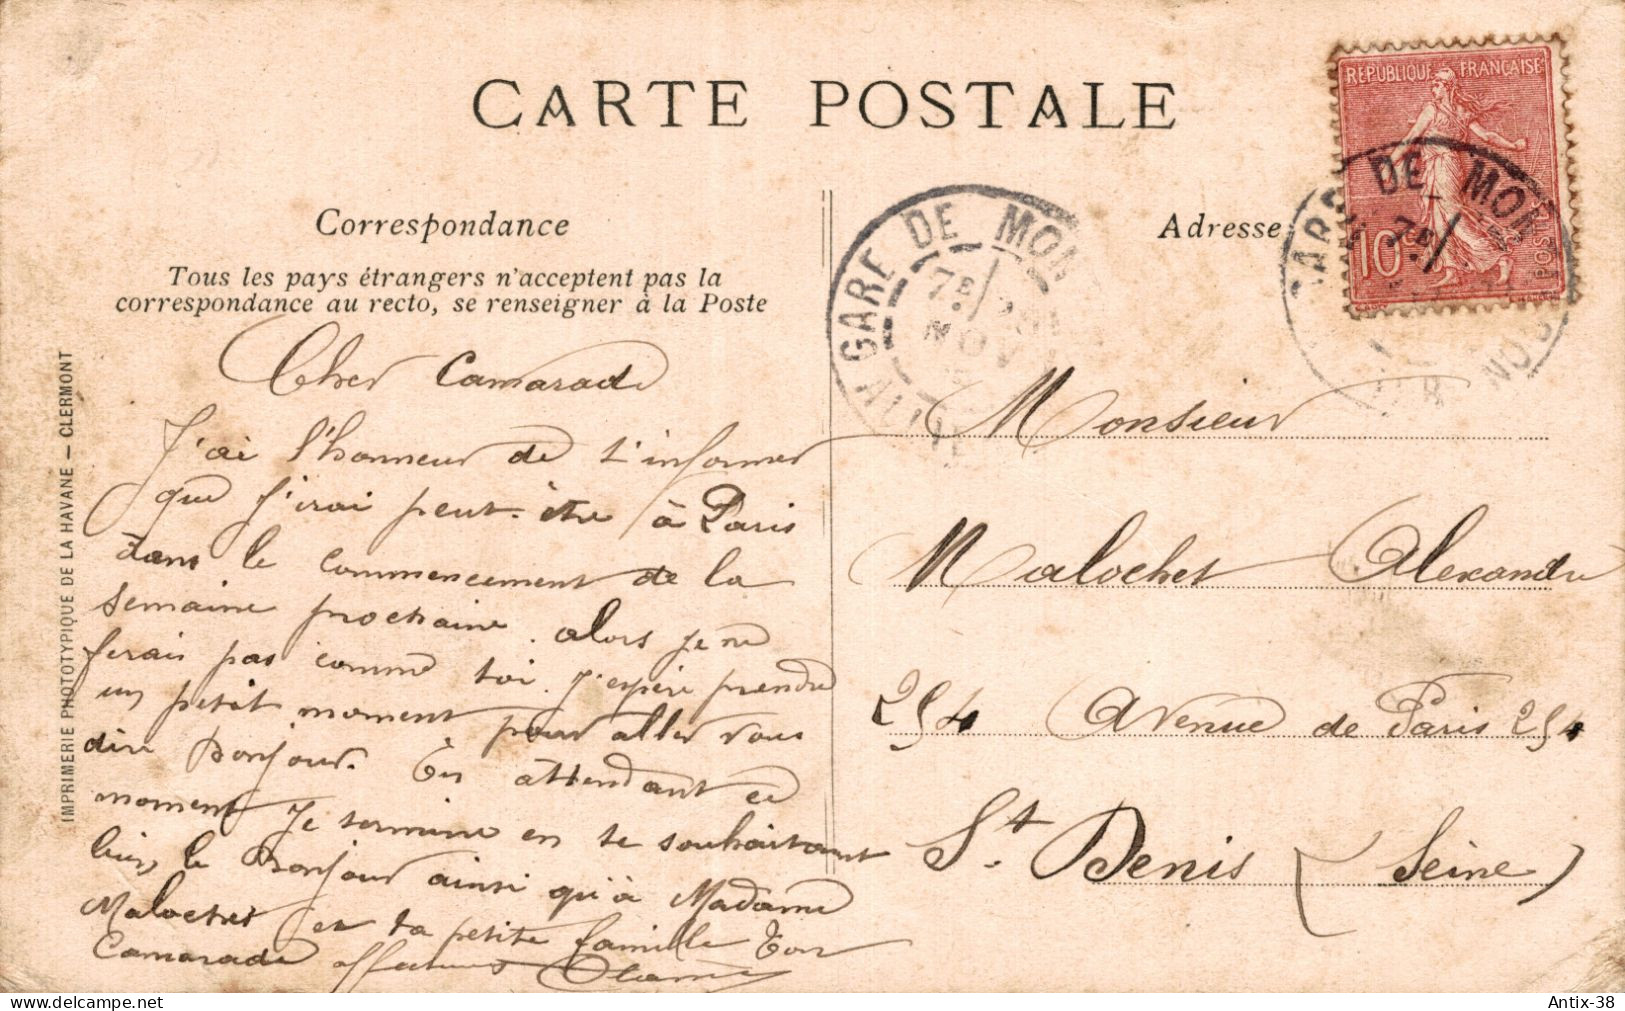 CARTE POSTALE
Correspondance
Tous les pays étrangers n'acceptent pas la
correspondance au recto, se renseigner à la Poste
Cher Camarade
J'ai l'honneur de t'informer
que j'irai peut-être à Paris
dans le commencement de la
semaine prochaine. alors je ne
ferais pas comme toi. J'espère prendre
un petit moment pour aller vous
dire Bonjour. En attendant ce
moment Je termine en te souhaitant
bien le Bonjour ainsi qu'à Madame
Malochet et ta petite famille Ton
Camarade
IMPRIMERIE PHOTOTYPIQUE DE LA HAVANE — CLERMONT
Adresse
REPUBLIQUE FRANÇAISE
10c
GARE DE MON
7E
NOV
GARE DE MON
7E
Monsieur
Malochet Alexandre
254 Avenue de Paris 254
St. Denis (Seine)
Antix-38
www.delcampe.net